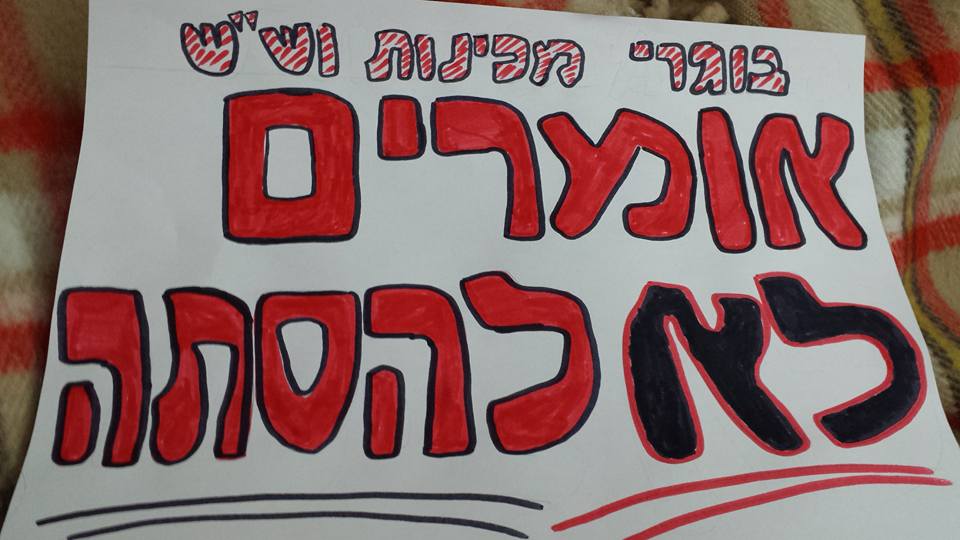 בוגרי מכינות וש"ש
אומרים
לא להסתה